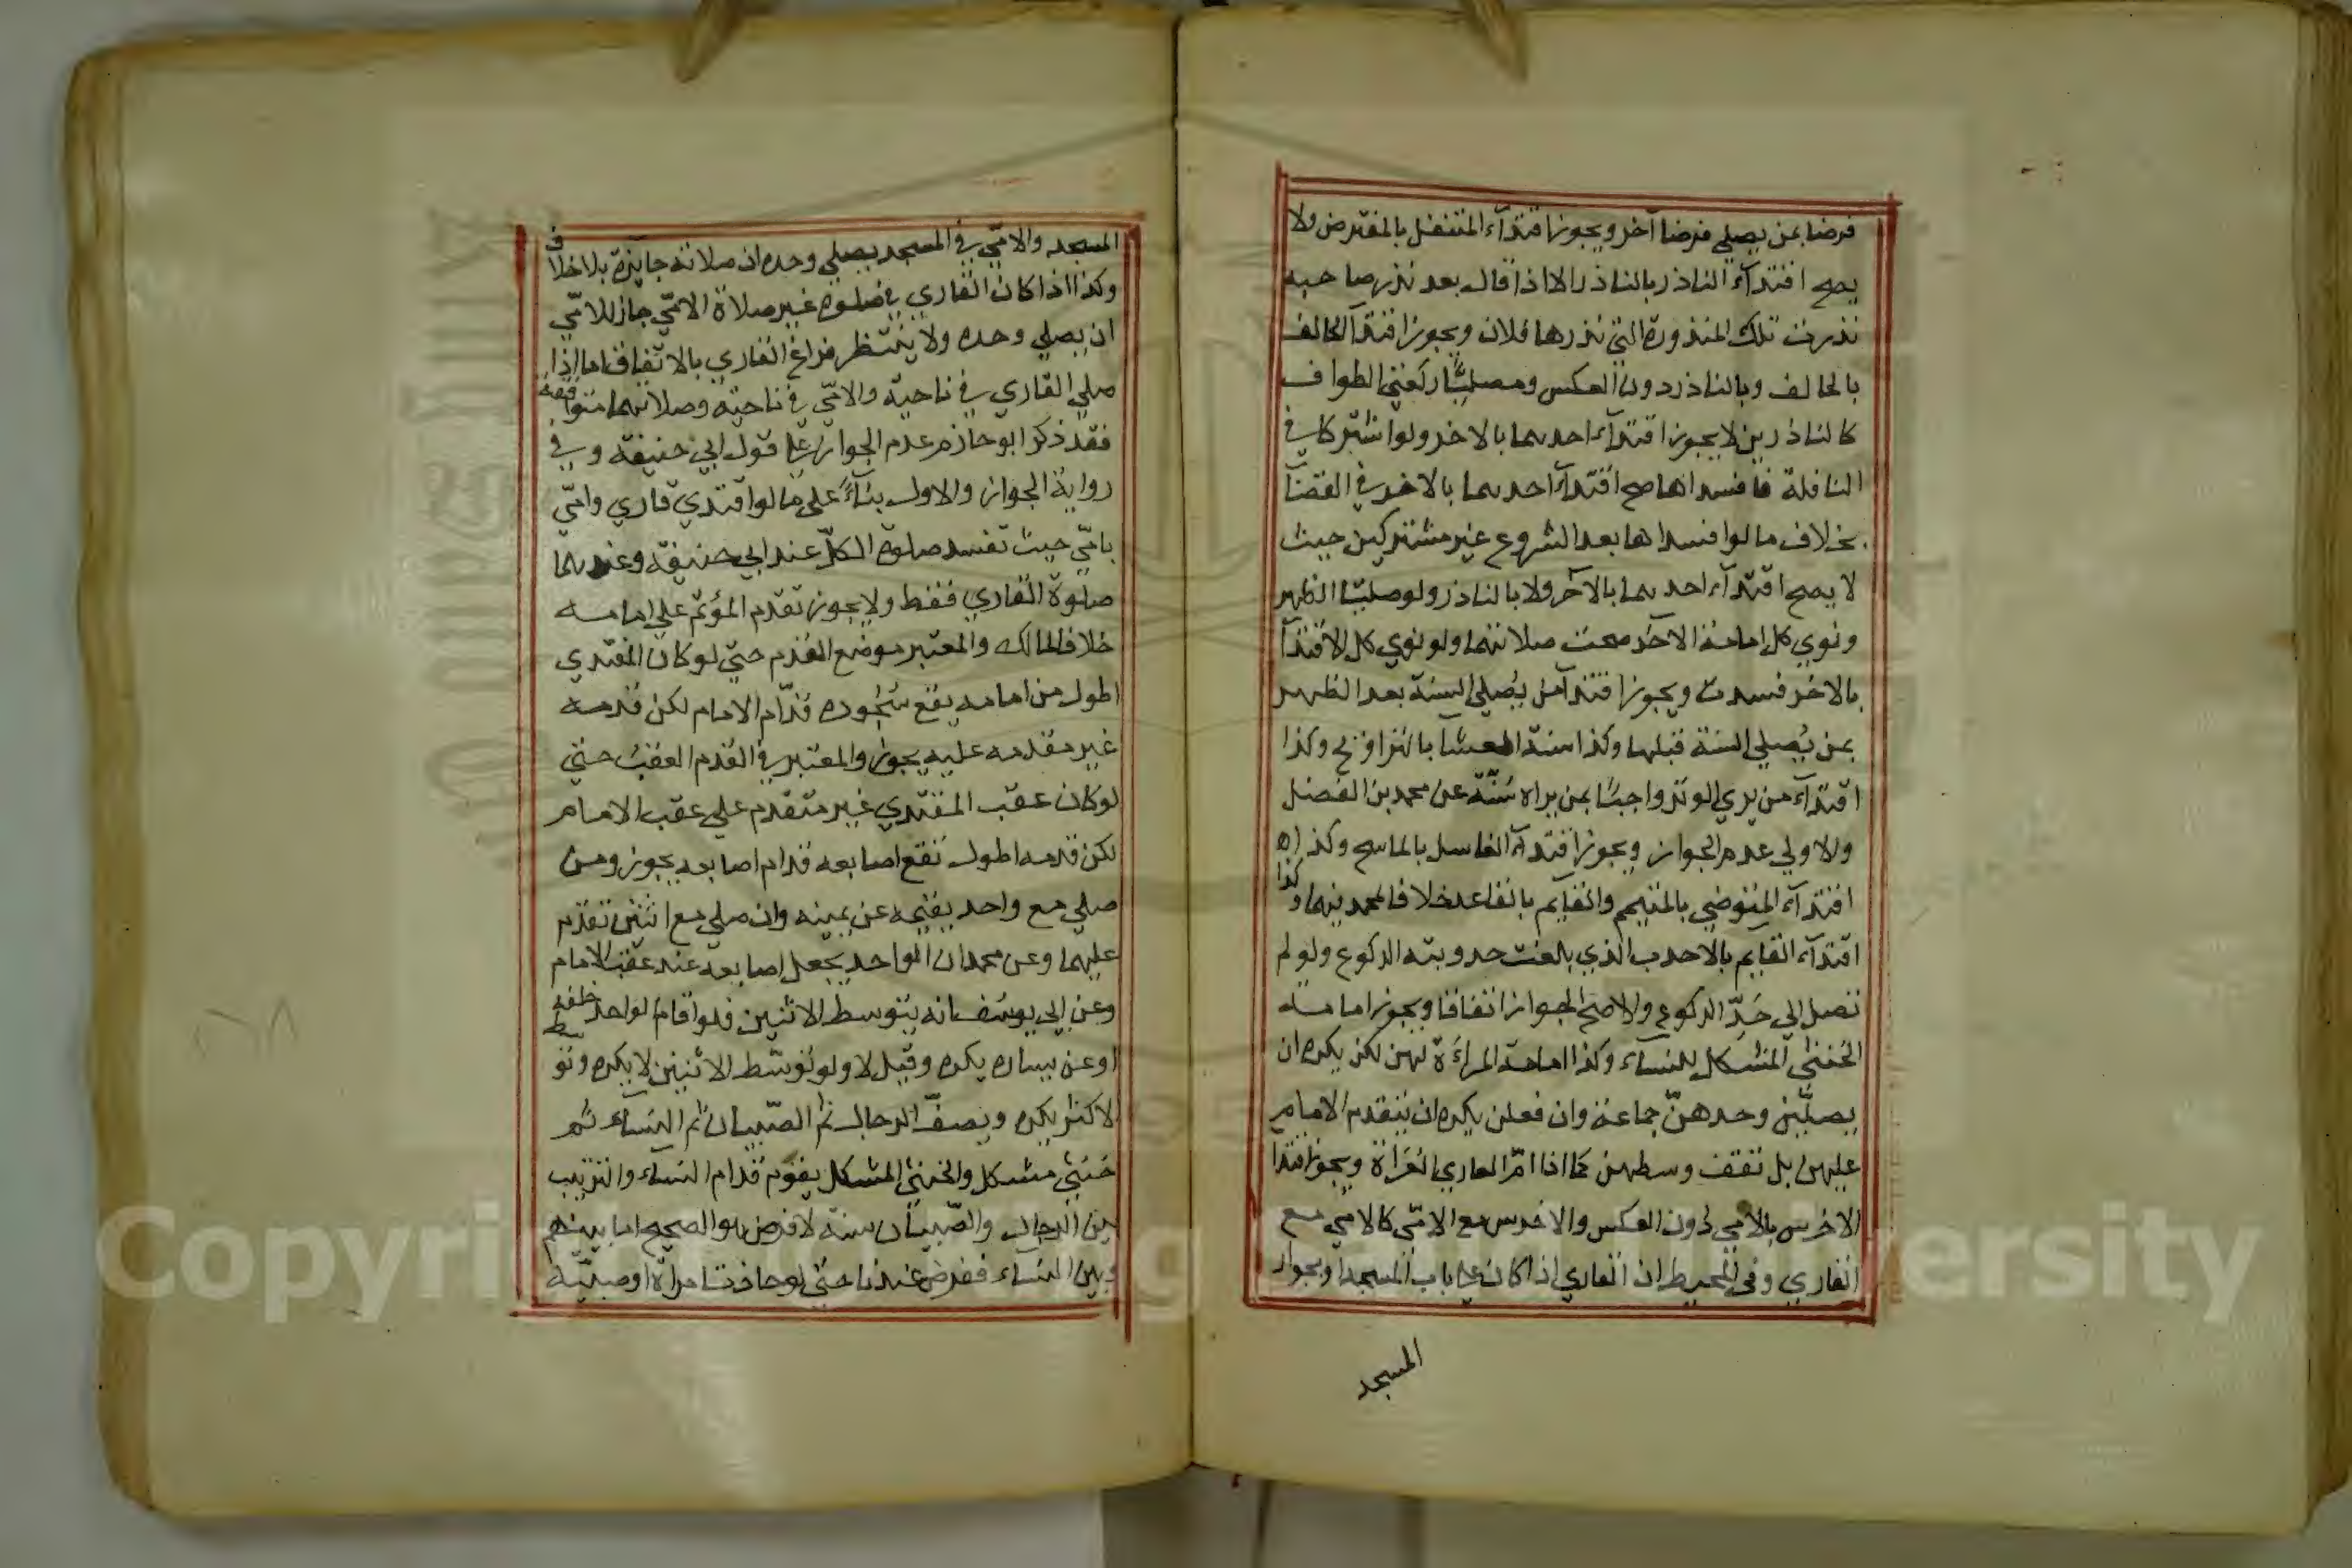 فرضا بمن يصلي فرضا آخر ويجوز اقتدآء المتنفل بالمفترض ولا
يصح اقتدآء الناذر بالناذر الا اذا قال بعد نذر صاحبه
نذرت تلك المنذورة التي نذرها فلان ويجوز اقتدآ الحالف
بالحالف وبالناذر دون العكس ومصليّا ركعتي الطواف
كالناذرين لا يجوز اقتدآء احدهما بالاخر ولو اشتركا في
النافلة فافسداها صح اقتدآء احدهما بالاخر في القضآ
بخلاف ما لو افسداها بعد الشروع غير مشتركين حيث
لا يصح اقتدآء احدهما بالآخر ولا بالناذر ولو صليا الظهر
ونوي كل امامة الآخر صحت صلاتهما ولو نوي كل الاقتدآ
بالاخر فسدت ويجوز اقتدآ من يُصلي السنة بعد الظهر
بمن يُصلي السنة قبلها وكذا سنة العشا بالتراويح وكذا
اقتدآء من يري الوتر واجبًا بمن يراه سُنّة عن محمد بن الفضل
والاولي عدم الجواز ويجوز اقتدآء الغاسل بالماسح وكذا
اقتدآء المتوضي بالمتيمم والقايم بالقاعد خلافا لمحمد فيهما وكذا
اقتدآء القايم بالاحدب الذي بلغت حدوبته الركوع ولو لم
تصل الي حَدِّ الركوع والاصح الجواز اتفاقا ويجوز امامة
الخنثي المشكل للنسآء وكذا امامة المراءة لهن لكن يكره ان
يصلّين وحدهنّ جماعة وان فعلن يكره ان يتقدم الامام
عليهن بل تقف وسطهن كما اذا امّ العاري العُرَاة ويجوز اقتدا
الاخرس بالامي دون العكس والاخرس مع الامّي كالامي مع
القاري وفي المحيط ان القاري اذا كان علي باب المسجد او بجوار
المسجد
المسجد والامّي في المسجد يصلي وحده ان صلاته جايزة بلا خلاف
وكذا اذا كان القاري في صلوة غير صلاة الامّي جاز للامّي
ان يصلي وحده ولا ينتظر فراغ القاري بالاتفاق اما اذا
صلي القاري في ناحية والامّي في ناحية وصلاتهما متوافقة
فقد ذكر ابو حازم عدم الجواز علي قول ابي حنيفة وفي
رواية الجواز والاول بنآءً علي ما لو اقتدي قاري وامّي
بامّي حيث تفسد صلوة الكلّ عند ابي حنيفة وعندهما
صلوة القاري فقط ولا يجوز تقدم المؤتم علي امامه
خلافا لمالك والمعتبر موضع القدم حتّي لو كان المقتدي
اطول من امامه يقع سُجُوده قدّام الامام لكن قدمه
غير مقدمه عليه يجوز والمعتبر في القدم العقب حتي
لو كان عقب المقتدي غير متقدم علي عقب الامام
لكن قدمه اطول تقع اصابعه قدام اصابعه يجوز ومن
صلي مع واحد يقيمه عن يمينه وان صلي مع اثنين تقدّم
عليهما وعن محمد ان الواحد يجعل اصابعه عند عقب الامام
وعن ابي يوسُف انه يتوسط الاثنين فلو اقام الواحد خلفه
او عن يساره يكره وقيل لا ولو توسّط الاثنين لا يكره وتوسط
الاكثر يكره ويصفّ الرجال ثم الصّبيان ثم النسآء ثم
خنثي مشكل والخنثي المشكل يقوم قدام النساء والترتيب
بين الرجال والصّبيان سنة لا فرض هو الصحيح اما بينهم
وبين النساء ففرض عندنا حتي لو حاذت امراة او صبيّة